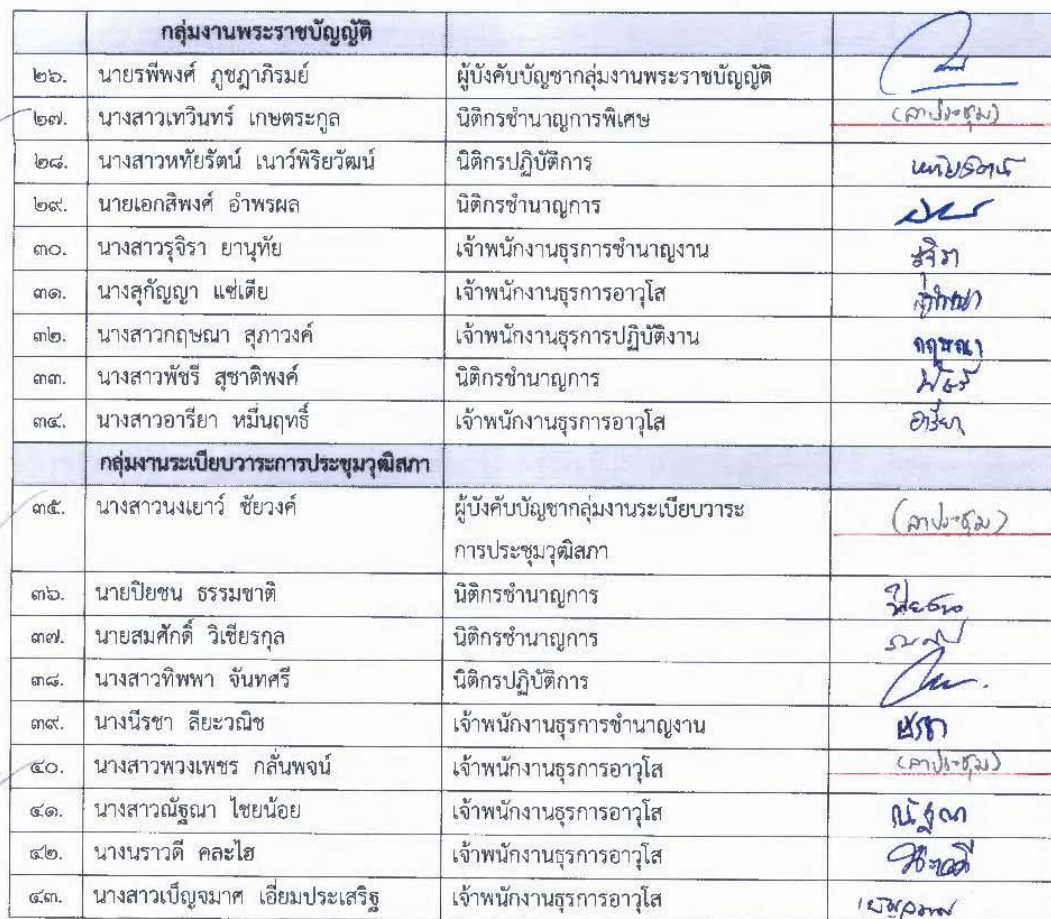 กลุ่มงานพระราชบัญญัติ
๒๖. นายรพีพงศ์ ภูชฎาภิรมย์ ผู้บังคับบัญชากลุ่มงานพระราชบัญญัติ
๒๗. นางสาวเทวินทร์ เกษตระกูล นิติกรชำนาญการพิเศษ (ลาประชุม)
๒๘. นางสาวหทัยรัตน์ เนาว์พิริยวัฒน์ นิติกรปฏิบัติการ หทัยรัตน์
๒๙. นายเอกสิพงศ์ อำพรผล นิติกรชำนาญการ
๓๐. นางสาวรุจิรา ยานุทัย เจ้าพนักงานธุรการชำนาญงาน รุจิรา
๓๑. นางสุกัญญา แซ่เตีย เจ้าพนักงานธุรการอาวุโส
๓๒. นางสาวกฤษณา สุภาวงค์ เจ้าพนักงานธุรการปฏิบัติงาน กฤษณา
๓๓. นางสาวพัชรี สุชาติพงค์ นิติกรชำนาญการ พัชรี
๓๔. นางสาวอารียา หมื่นฤทธิ์ เจ้าพนักงานธุรการอาวุโส อารียา
กลุ่มงานระเบียบวาระการประชุมวุฒิสภา
๓๕. นางสาวนงเยาว์ ชัยวงค์ ผู้บังคับบัญชากลุ่มงานระเบียบวาระ (ลาประชุม)
การประชุมวุฒิสภา
๓๖. นายปิยชน ธรรมชาติ นิติกรชำนาญการ ปิยชน
๓๗. นายสมศักดิ์ วิเชียรกุล นิติกรชำนาญการ
๓๘. นางสาวทิพพา จันทศรี นิติกรปฏิบัติการ
๓๙. นางนีรชา ลียะวณิช เจ้าพนักงานธุรการชำนาญงาน นีรชา
๔๐. นางสาวพวงเพชร กลั่นพจน์ เจ้าพนักงานธุรการอาวุโส (ลาประชุม)
๔๑. นางสาวณัฐณา ไชยน้อย เจ้าพนักงานธุรการอาวุโส ณัฐณา
๔๒. นางนราวดี คละไฮ เจ้าพนักงานธุรการอาวุโส
๔๓. นางสาวเบ็ญจมาศ เอี่ยมประเสริฐ เจ้าพนักงานธุรการอาวุโส